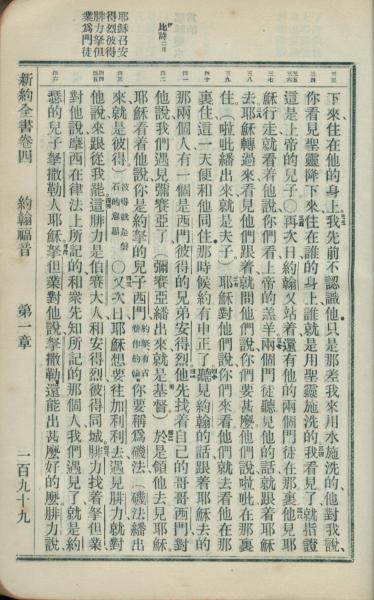 耶穌召安
得烈彼得
腓力拏但
業爲門徒
新約全書卷四
約翰福音
第一章
二百九十九
下來住在他的身上我先前不認識他只是那差我來用水施洗的他對我說
你看見聖靈降下來住在誰的身上誰就是用聖靈施洗的我看見了就指證
這是上帝的兒子○再次日約翰又站着還有他的兩個門徒在那裏他見耶
穌行走就看着他說你們看上帝的羔羊兩個門徒聽見他的話就跟着耶穌
去耶穌轉過來看見他們跟着就問他們說你們要甚麽他們說啦吡在那裏
住（啦吡繙出來就是夫子）耶穌對他們說你們來看他們就去看他在那
裏住這一天便和他同住那時候約有申正了聽見約翰的話跟着耶穌去的
那兩個人有一個是西門彼得的兄弟安得烈他先找着自己的哥哥西門對
他說我們遇見彌賽亞了（彌賽亞繙出來就是基督）於是領他去見耶穌
耶穌看着他說你是約拏的兒子西門你要稱爲磯法（磯法繙出
來就是彼得）○又次日耶穌想要往加利利去遇見腓力就對
他說來跟從我罷這腓力是伯賽大人和安得烈彼得同城腓力找着拏但業
對他說摩西在律法上所記的和衆先知所記的那個人我們遇見了就是約
瑟的兒子拏撒勒人耶穌拏但業對他說拏撒勒還能出甚麽好的麽腓力說